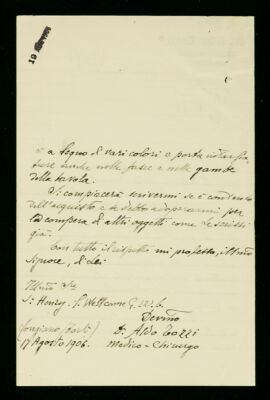 è a legno di vari colori e porta intarsia
ture anche nelle fasce e nelle gambe
della tavola.
Si compiacerà scrivermi se è contento
dell'acquisto e se debbo adoperarmi per
la compera di altri oggetti come le scrissi
già.
Con tutto il rispetto mi professo, Ill.mo
Signore, di Lei
Ill.mo Sr.
Sr. Henry. S. Wellcome
Dev.mo
Dr. Aldo Tozzi
Medico-Chirurgo
Longiano (Forlì)
17 Agosto 1906.